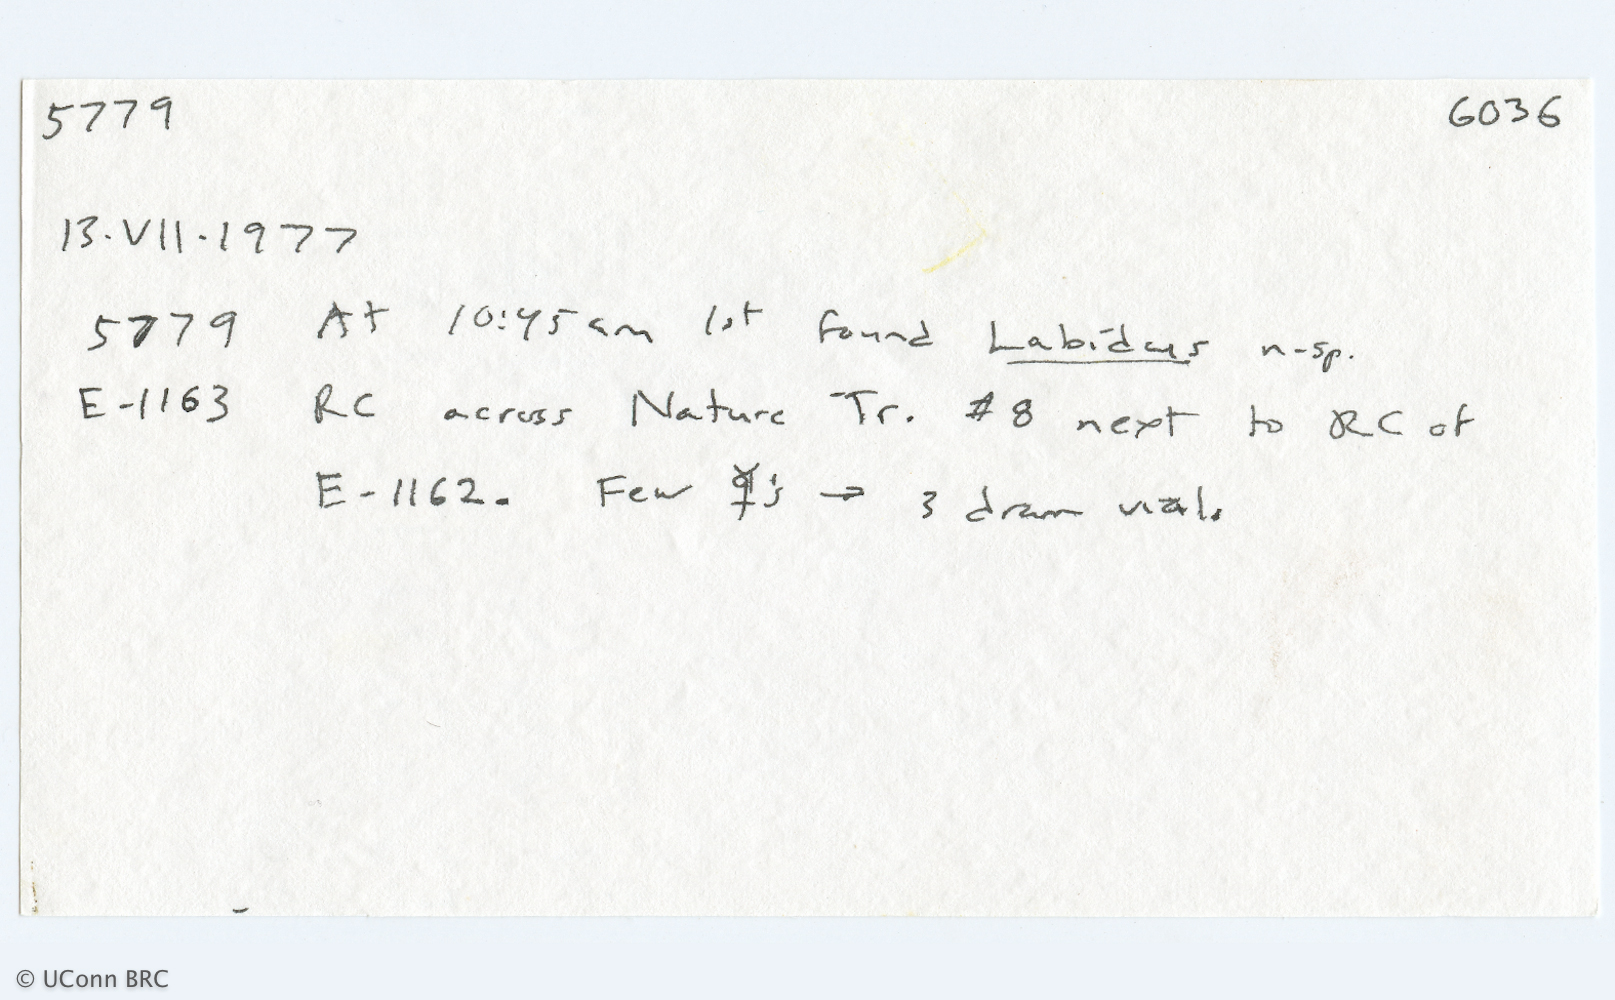 5779 6036
13.VII.1977
5779 At 10:45am 1st found Labidus n-sp.
E-1163 RC across Nature Tr. #8 next to RC of
E-1162. Few ☿'s → 3 dram vial.
© UConn BRC